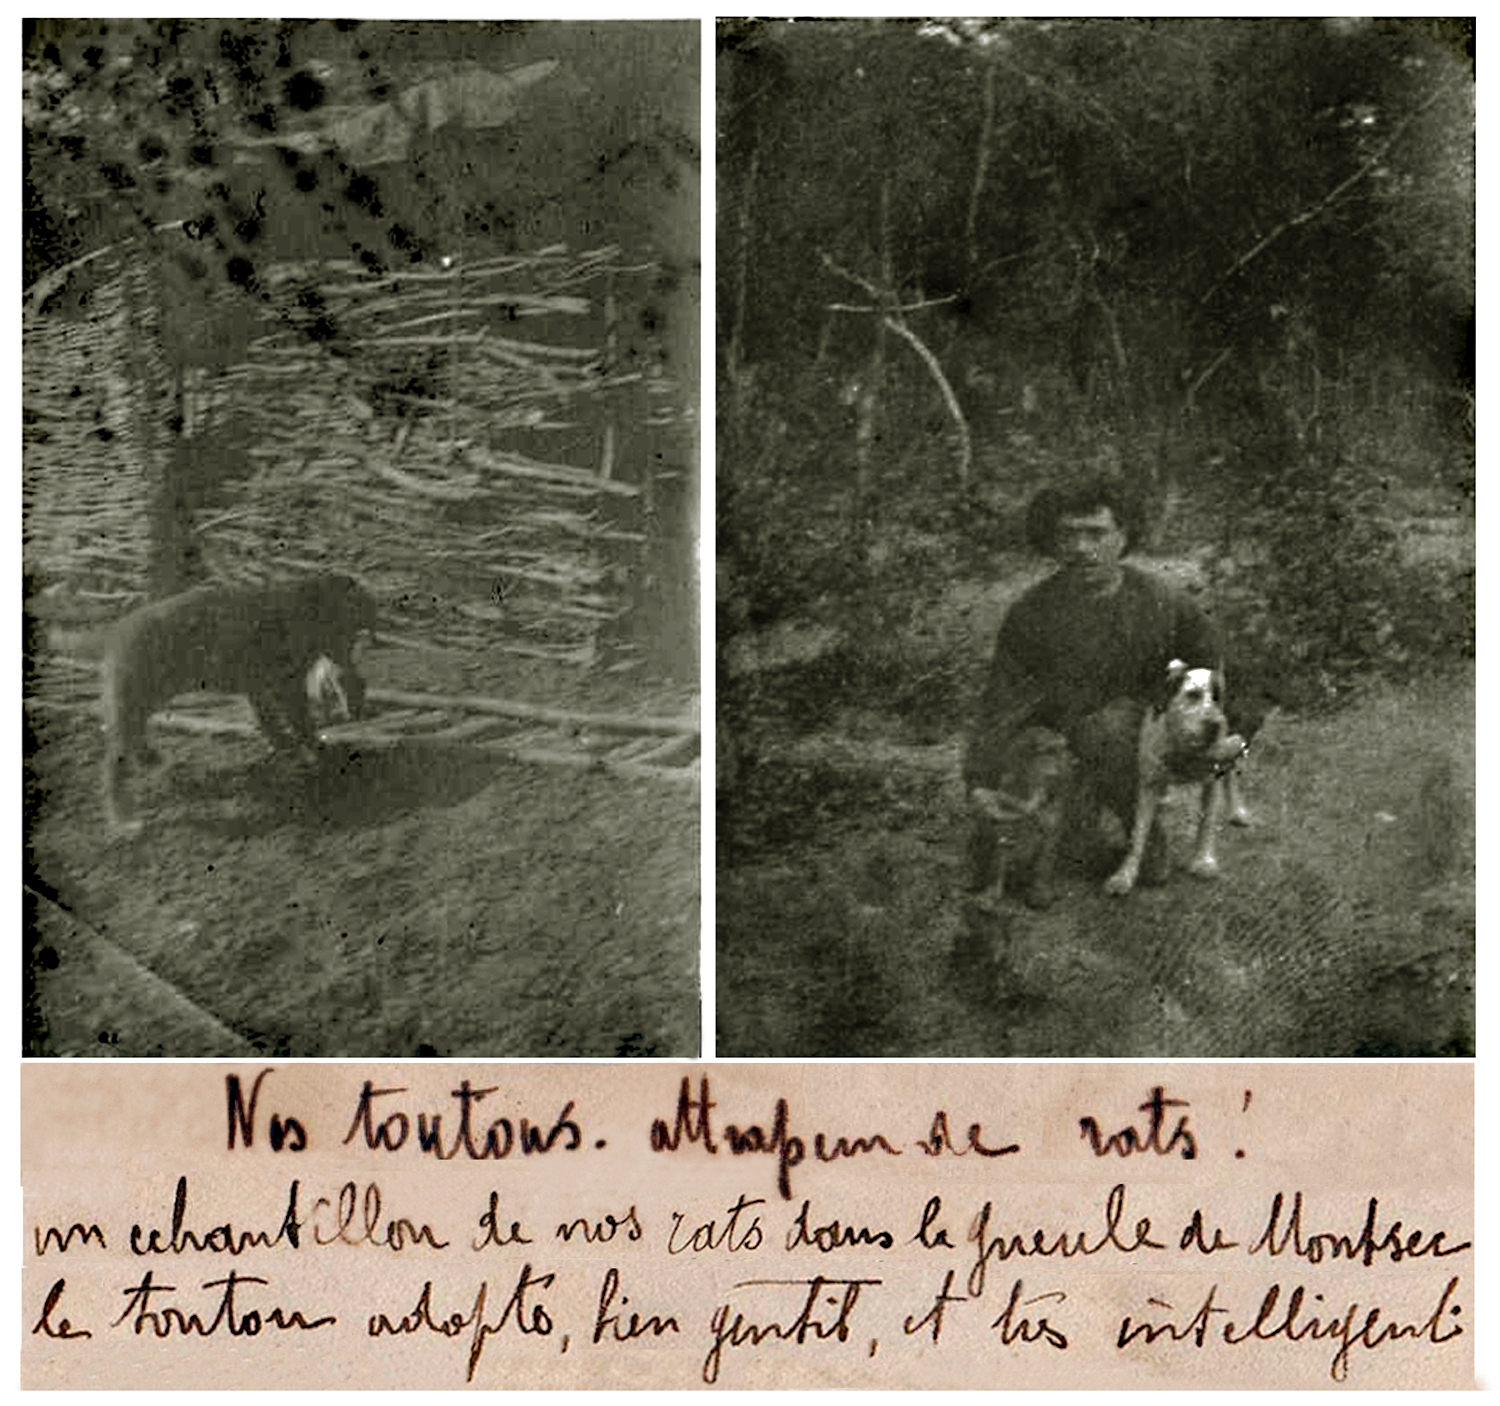 Nos toutous. attrapeur de rats!
un echantillon de nos rats dans la gueule de Montsec
le toutou adopté, bien gentil, et très intelligent.